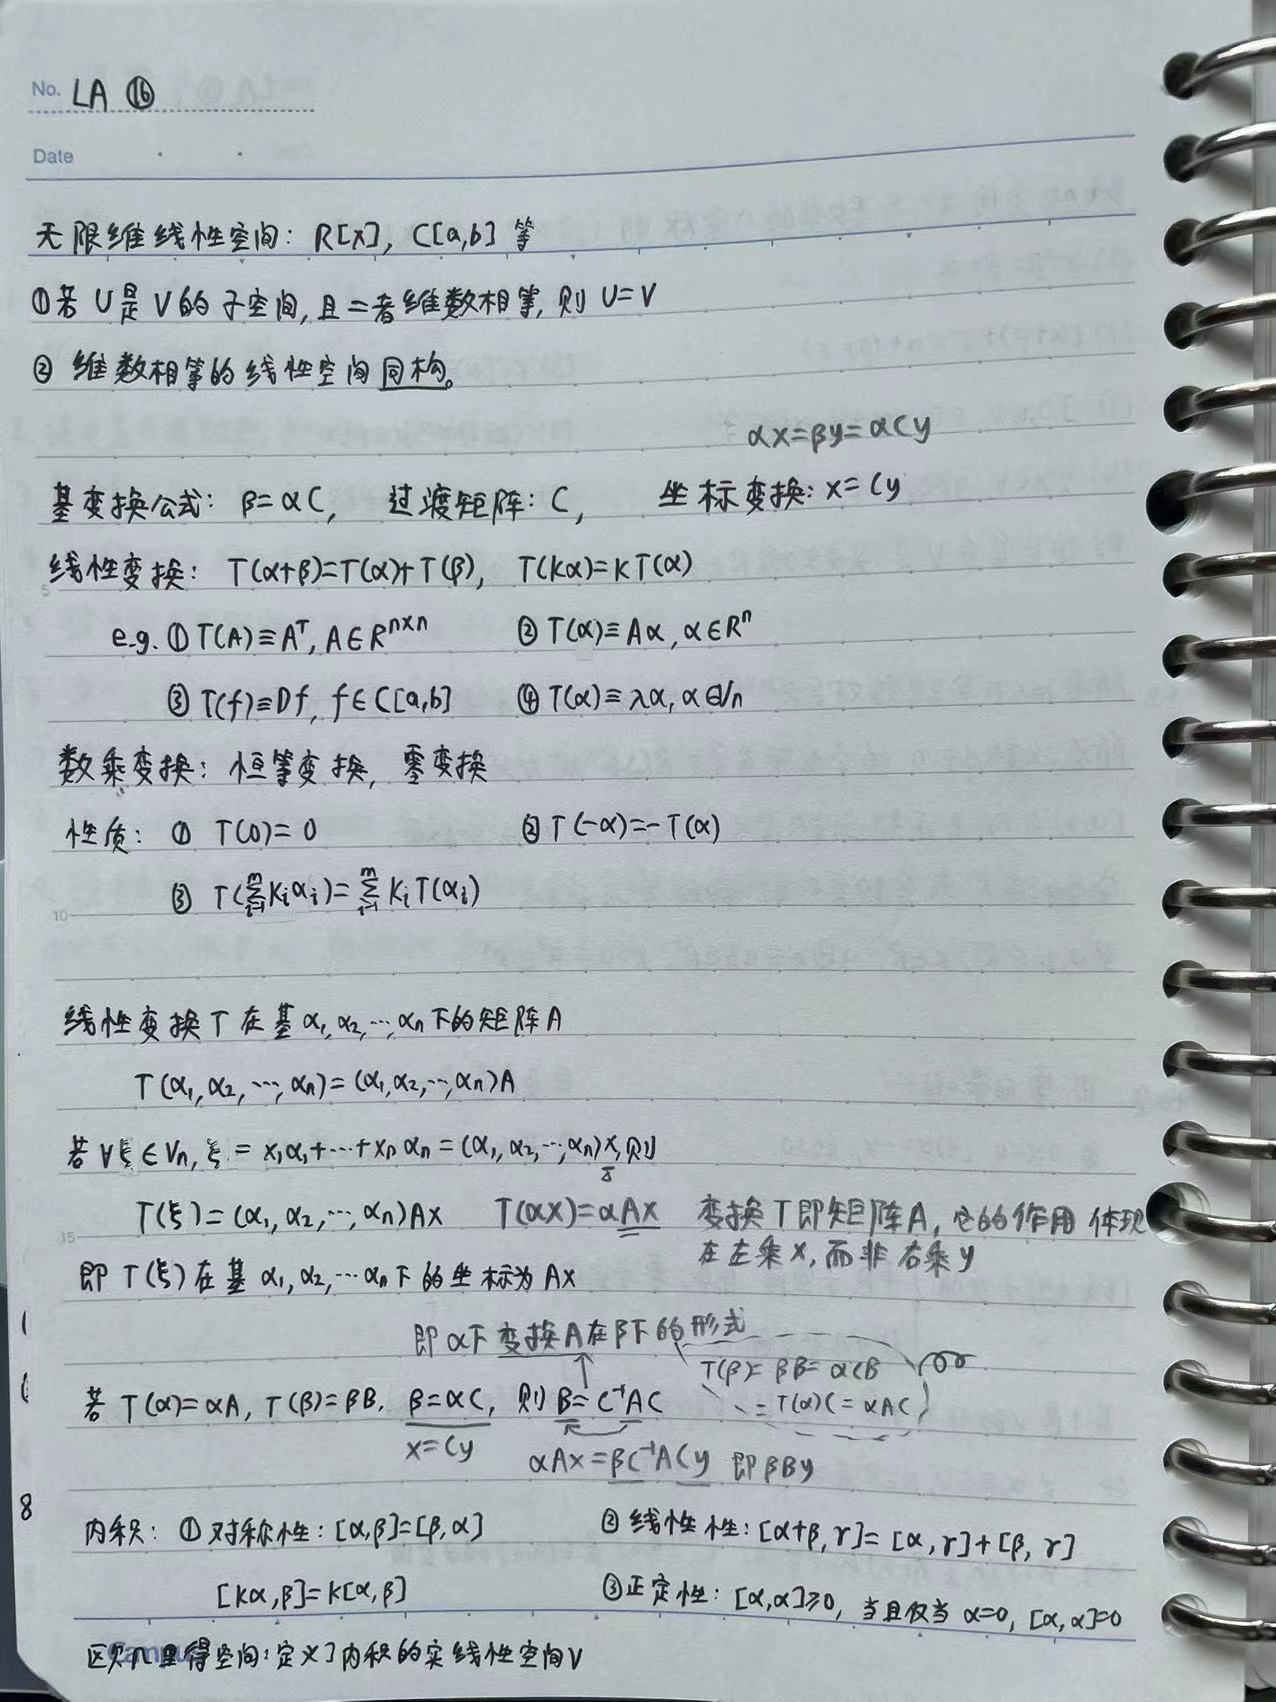 No. LA ⑯
Date
无限维线性空间: R[x], C[a,b] 等
①若 U是 V的子空间,且二者维数相等,则 U=V
② 维数相等的线性空间同构。
αx=βy=αCy
基变换公式: β=αC, 过渡矩阵: C, 坐标变换: x=Cy
线性变换: T(α+β)=T(α)+T(β), T(kα)=kT(α)
5
e.g. ①T(A)≡Aᵀ, A∈Rⁿˣⁿ ② T(α)≡Aα, α∈Rⁿ
③ T(f)≡Df, f∈C[a,b] ④ T(α)≡λα, α∈Vn
数乘变换: 恒等变换, 零变换
性质: ① T(0)=0 ② T(-α)=-T(α)
③ T(∑ᵐᵢ₌₁kᵢαᵢ)=∑ᵐᵢ₌₁kᵢT(αᵢ)
10
线性变换T在基α₁,α₂,…,αn下的矩阵A
T(α₁,α₂,…,αn)=(α₁,α₂,…,αn)A
若∀ξ∈Vn, ξ=x₁α₁+…+xnαn=(α₁,α₂,…,αn)x,则
T(ξ)=(α₁,α₂,…,αn)Ax T(αx)=αAx 变换T即矩阵A, 它的作用体现
15
在左乘x,而非右乘y
即 T(ξ)在基 α₁,α₂,…αn下的坐标为Ax
即α下变换A在β下的形式
T(β)=βB=αCB
若 T(α)=αA, T(β)=βB, β=αC, 则B=C⁻¹AC
=T(α)C=αAC
x=Cy
αAx=βC⁻¹ACy 即βBy
8
内积: ①对称性: [α,β]=[β,α] ②线性性: [α+β,γ]=[α,γ]+[β,γ]
[kα,β]=k[α,β] ③正定性: [α,α]≥0, 当且仅当 α=0, [α,α]=0
Campus
欧几里得空间: 定义了内积的实线性空间V